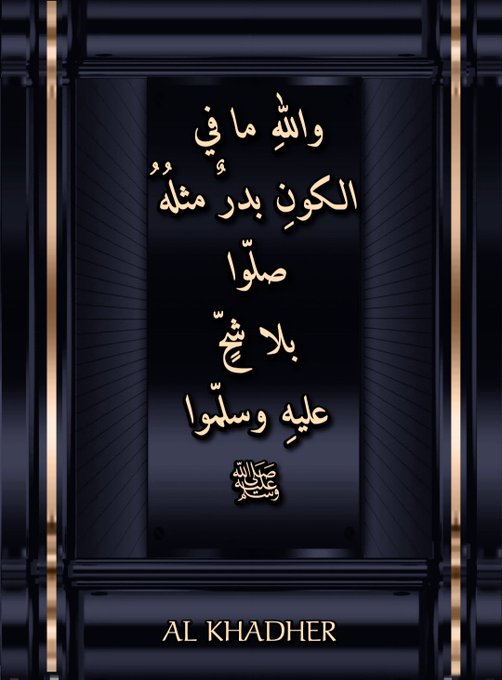 واللهِ ما في
الكونِ بدرٌ مثلهُ ُ
صلّوا
بلا شحٍّ
عليهِ وسلّموا
ﷺ
AL KHADHER